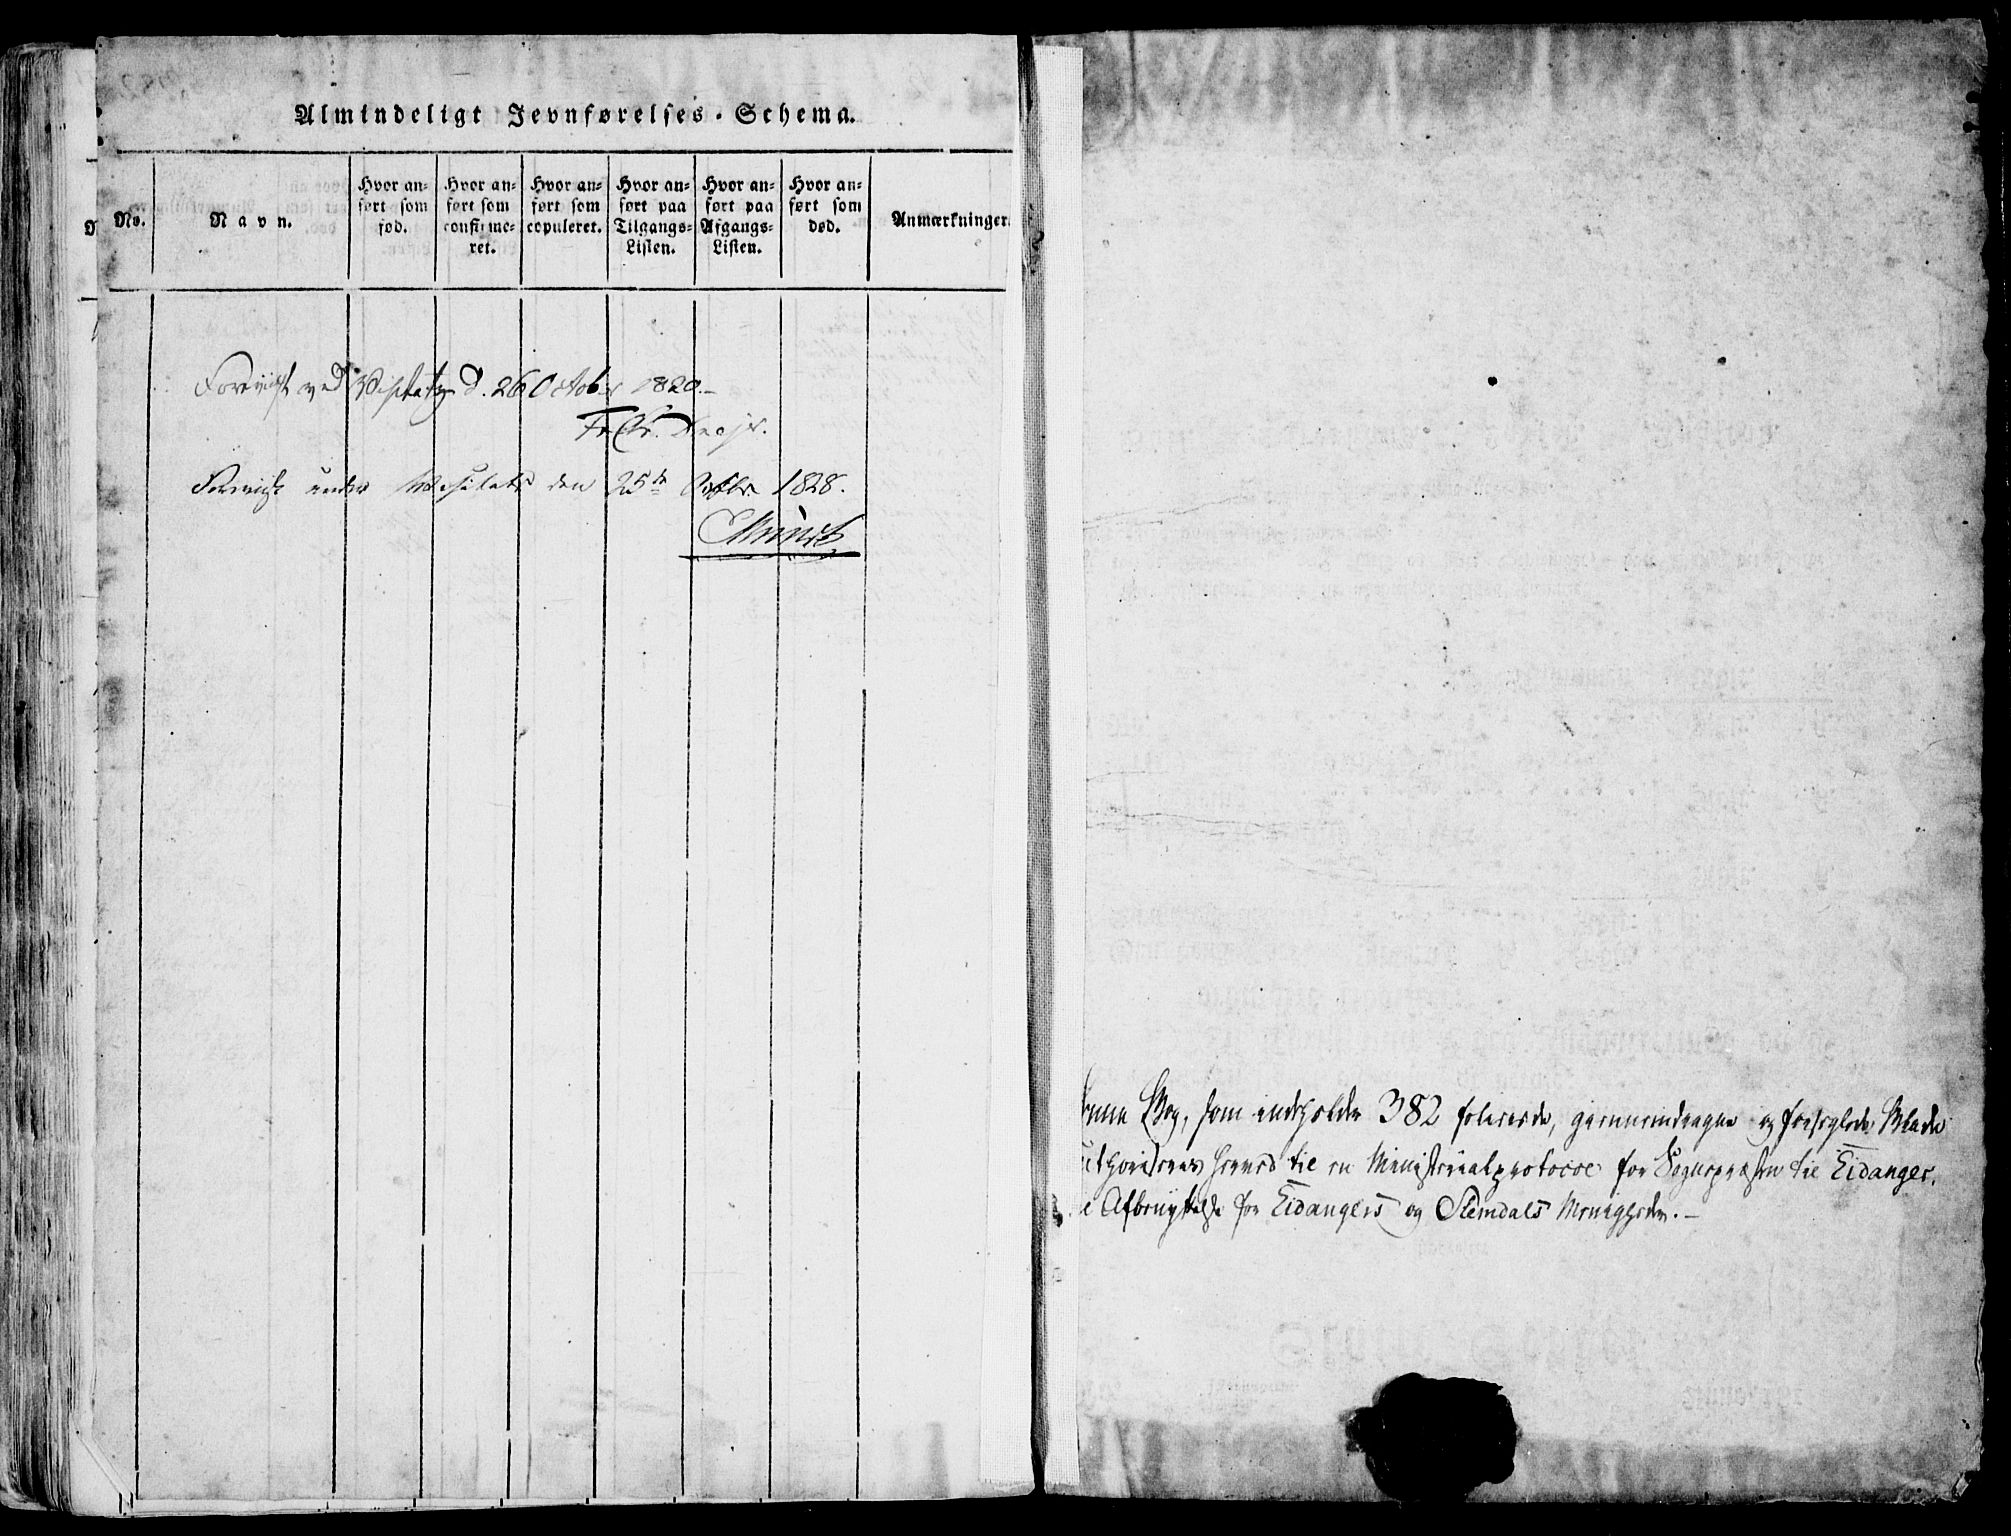 Almindeligt Jevnførelses-Schema.
No.
Navn.
Hvor an-
ført som
fød.
Hvor an-
ført som
confirme-
ret.
Hvor an-
ført som
copuleret.
Hvor an-
ført paa
Tilgangs-
Listen.
Hvor an-
ført paa
Afgangs-
Listen.
Hvor an-
ført som
død.
Anmærkninger.
Foreviist ved Visitatz d. 26 October 1820.-
Fr. Chr.
Foreviist under Visitats den 25de Octbr. 1828.
Munch
Bog, som indeholder 382 folierede, giennemdragne og forseglede Blade
authoriseres herved til en Ministerialprotocol for Sognepræsten til Eidanger,
Afbenyttelse for Eidangers og Slemdals Menigheder.-